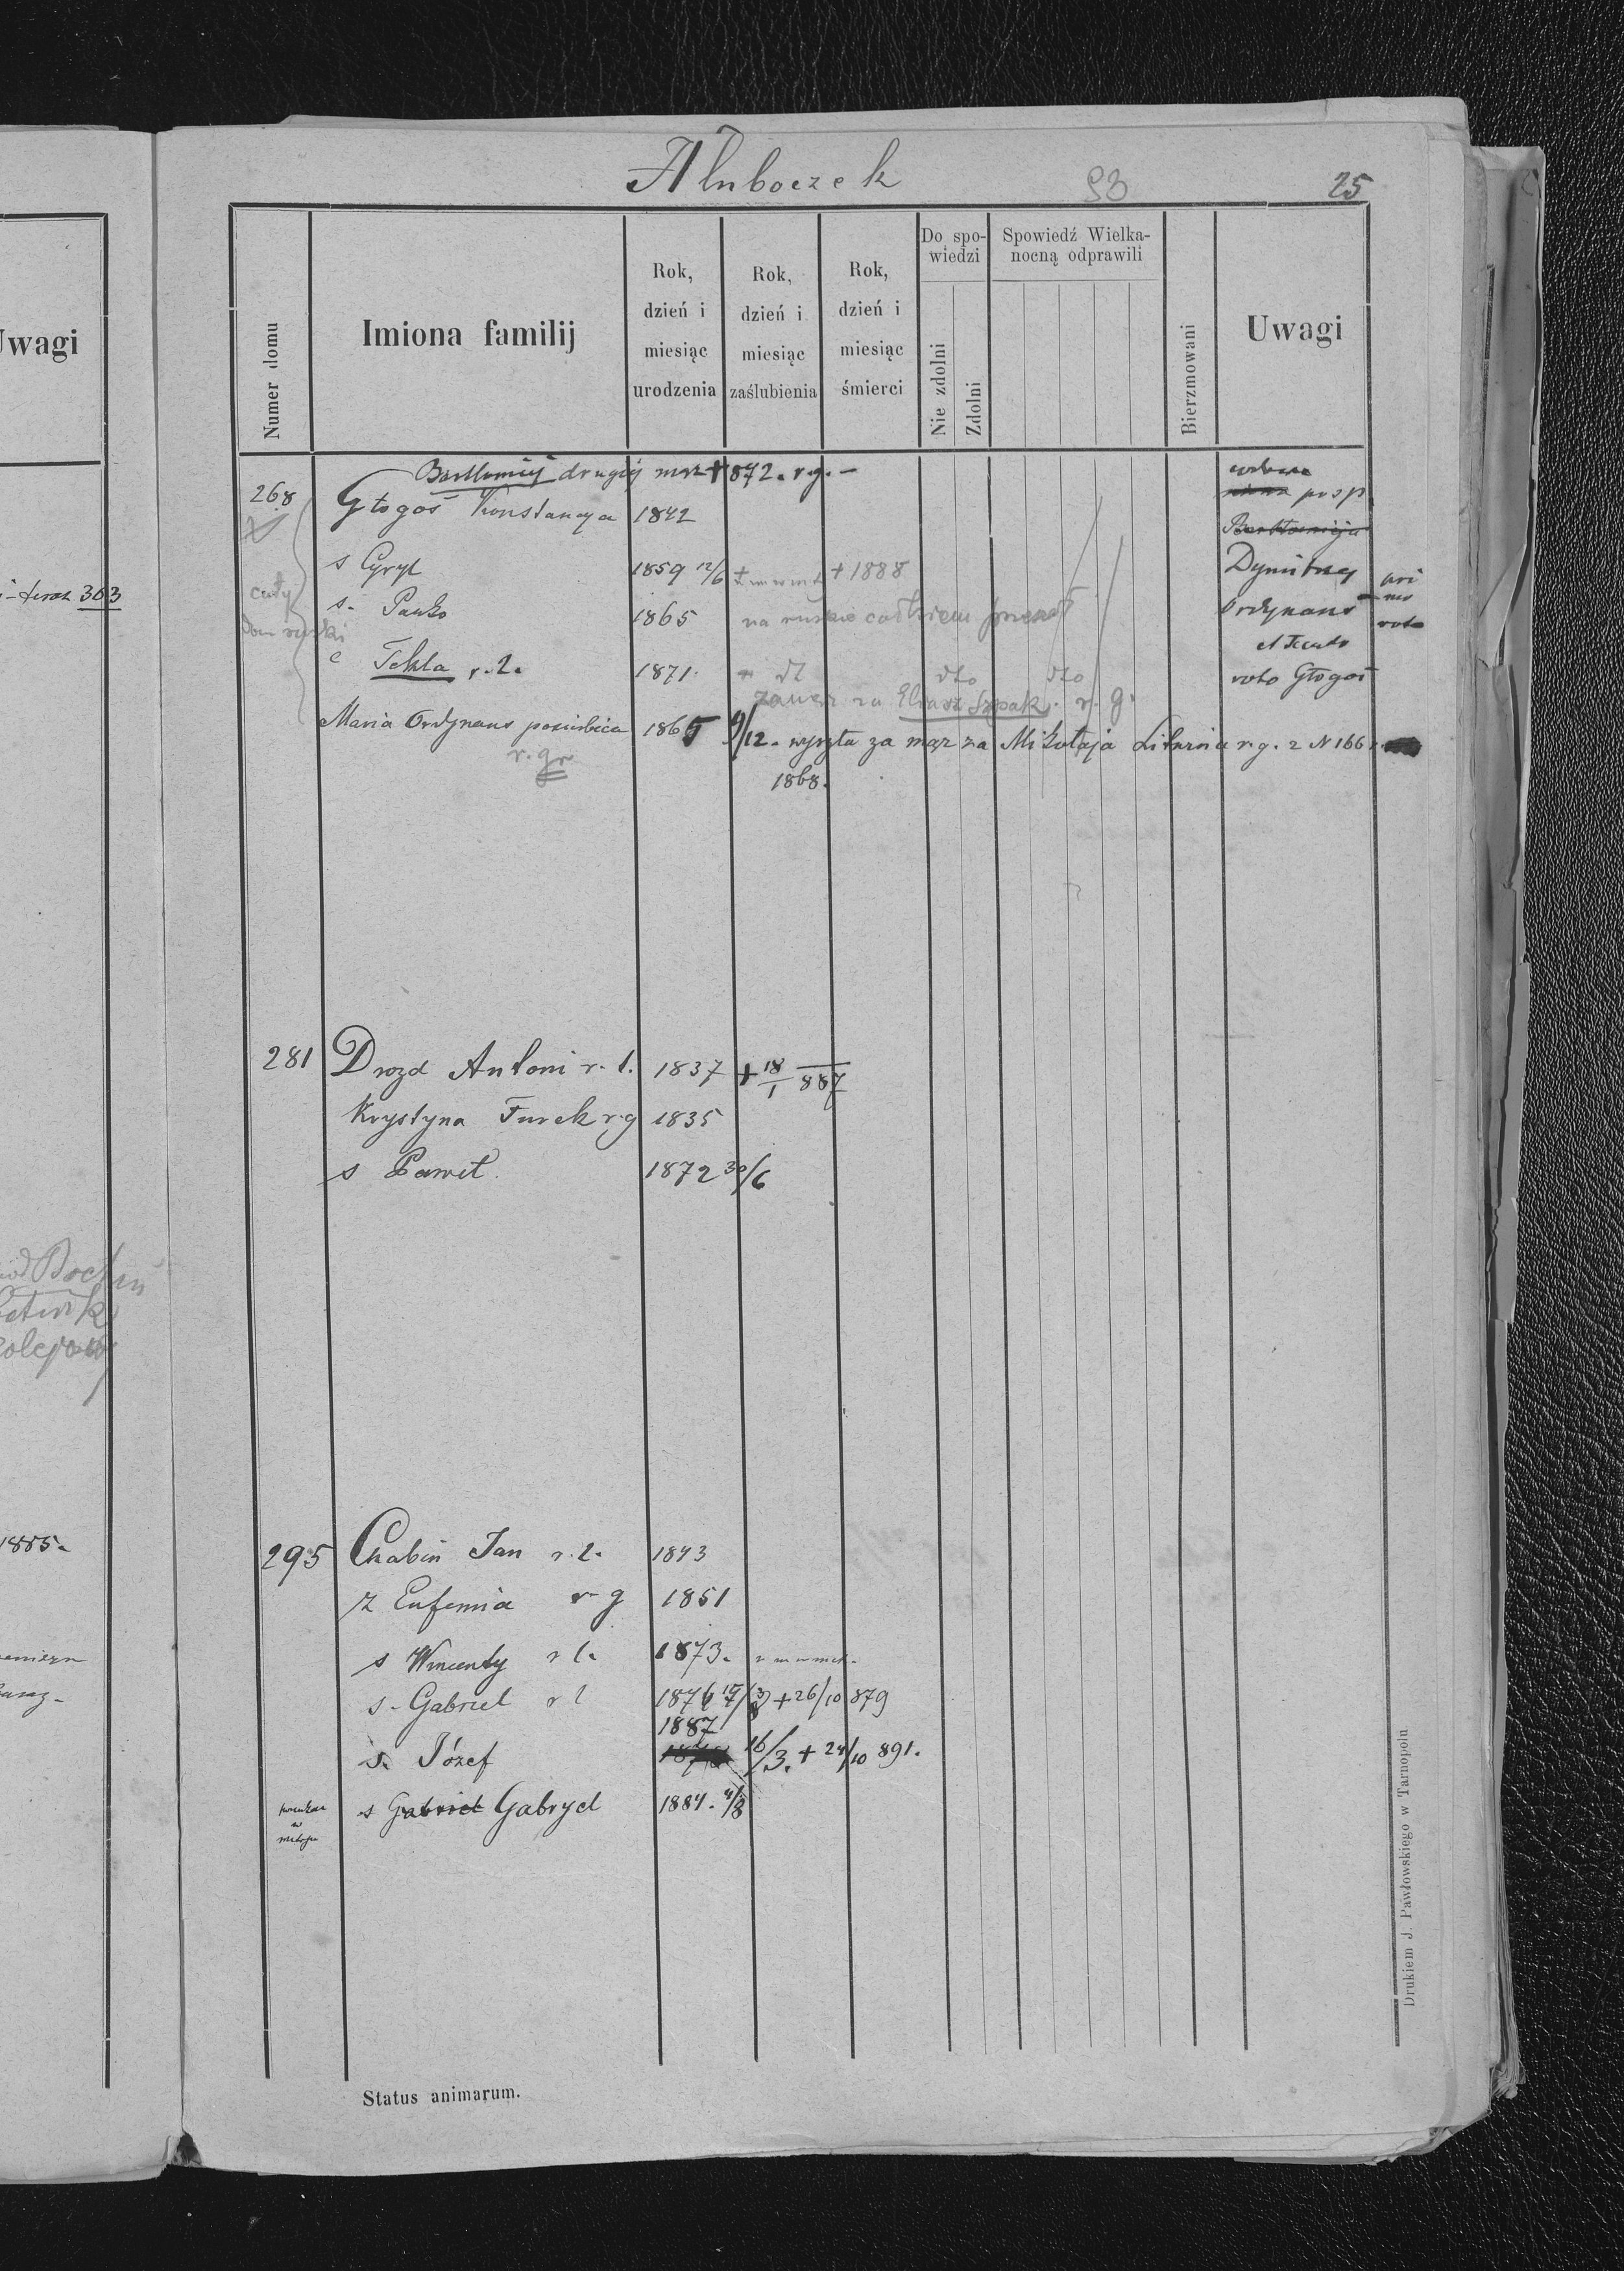 Uwagi
teraz 303
1885.
Hluboczek
93
25
Numer domu
Imiona familij
Rok, dzień i miesiąc urodzenia
Rok, dzień i miesiąc zaślubienia
Rok, dzień i miesiąc śmierci
Do spo-
wiedzi
Nie zdolni
Zdolni
Spowiedź Wielka-
nocną odprawili
Bierzmowani
Uwagi
Bartłomiej drugiej mąż + 872. r.g. –
268 Głogoś Konstancya 1842
posp
Bartłomieja
s Cyryl 1859 12/6 + 1888
Dymitrzy
cały
dom ruski
s. Pańko 1865 na ruskie
Ordynans
c Tekla r. l. 1871. dto dto
voto Głogoś
za Eliasz Szpak. r. g.
Maria Ordynans pasierbica 1865 9/12. wyszła za mąż za Mikołaja r. g. z N 166
r. gr.
1868.
281 Drozd Antoni r. l. 1837 + 18/1 887
Krystyna Turek r. g 1835
s Paweł 1872 30/6
295 Chabin Jan r. l. 1843
ż Eufemia r g 1851
s Wincenty r l. 1873.
s. Gabriel r l 1876 + 26/10 879
1887
s. Józef 16/3. + 24/10 891.
s Gabriel Gabryel 1884. 4/8
w
Status animarum.
Drukiem J. Pawłowskiego w Tarnopolu